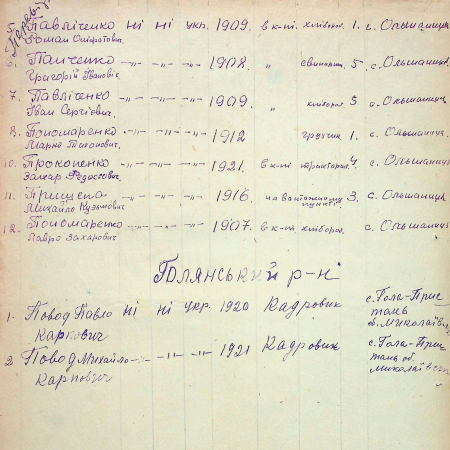 5. Павліченко ні ні укр. 1909. в к-пі. хлібороб. 1. с. Ольшаниця
Роман Оніфатович.
6. Панченко -„- -„- -„- 1908. „ свинарн. 5 с. Ольшаниця
Григорій Іванович.
7. Павліченко -„- -„- -„- 1909. „ хлібороб. 5 с. Ольшаниця
Іван Сергійович.
8. Пономаренко -„- -„- -„- 1912 1. с. Ольшаниця.
Марко Тихонович.
10. Прокопенко -„- -„- -„- 1921. в к-пі тракторис. 4 с. Ольшаниця
Захар Федосович
11. Прищепа -„- -„- -„- 1916. на вантажному 3. с. Ольшаниця
Михайло Кузьмович. пункті
12. Пономаренко -„- -„- -„- 1907. в к-пі хлібороб. с. Ольшаниця.
Лавро Захарович
р-н
1. Повод Павло ні ні укр. 1920 Кадровик с. Гола-Прис
Карпович тань
об. Миколаївськ
2 Повод Михайло -„- -„- -„- 1921 Кадровик с. Гола-Прис
Карпович тань об.
Миколаївськ